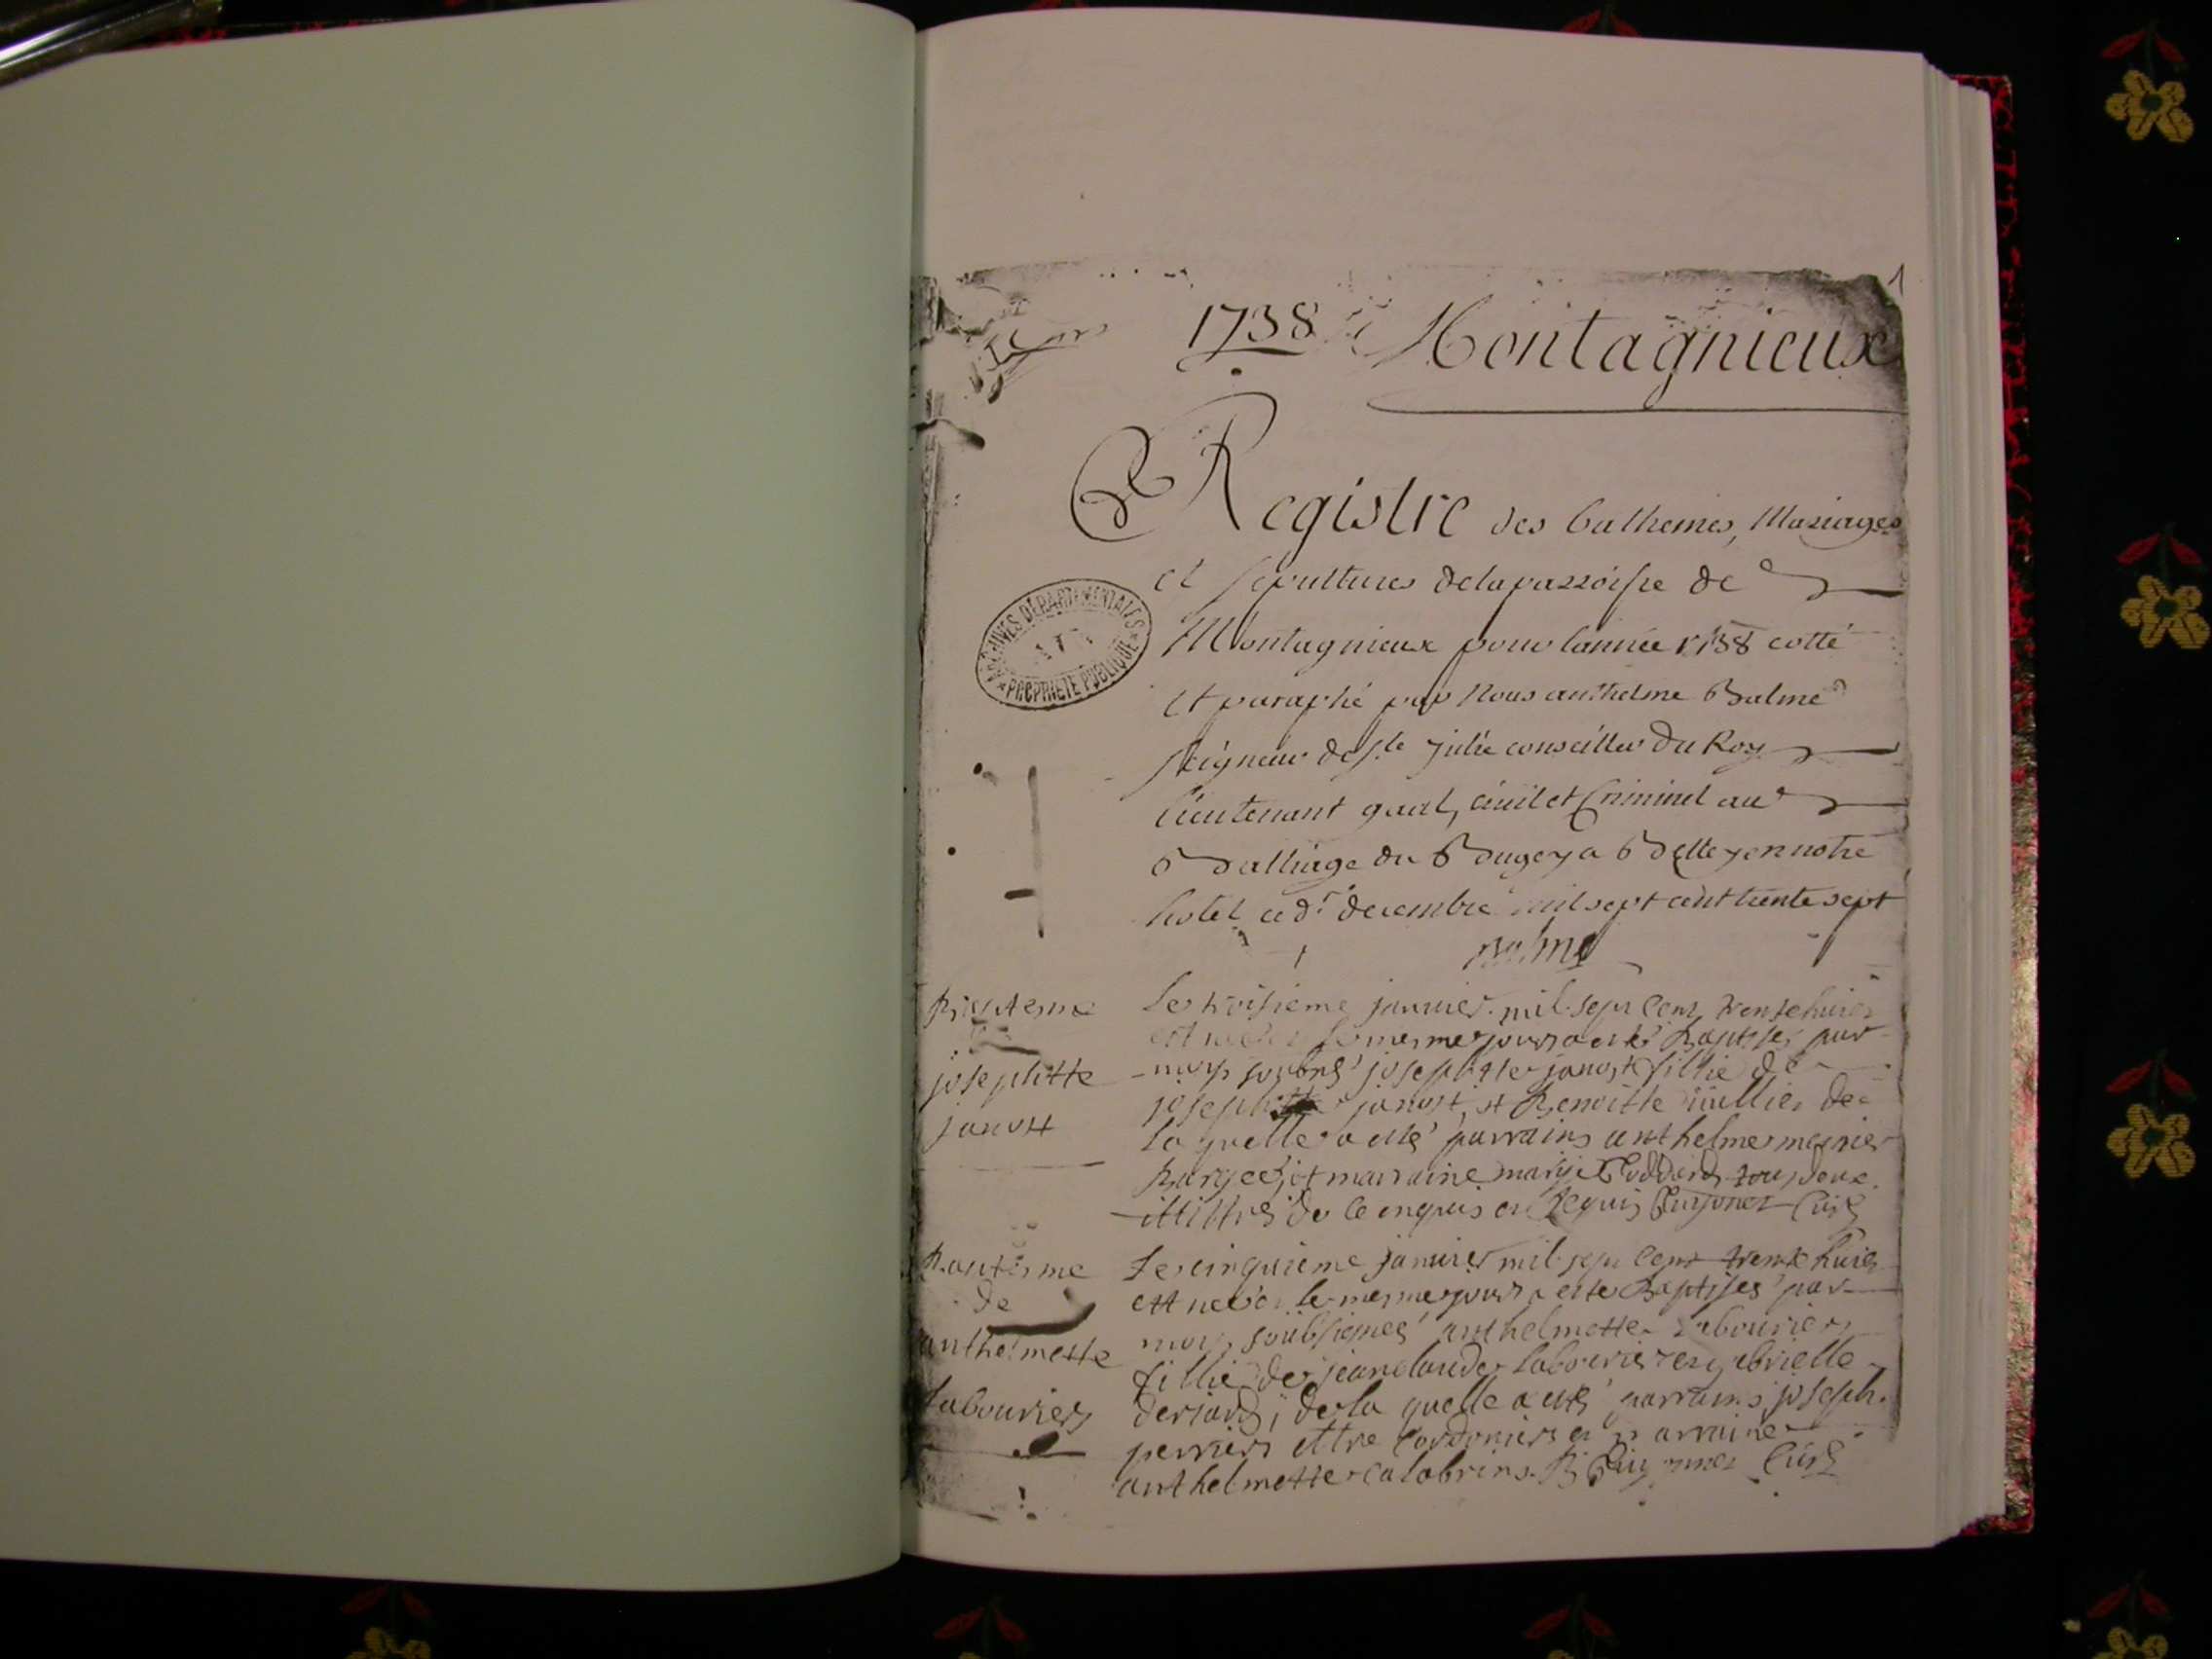 1
1738 Montagnieux
Registre des bathemes, Mariages
et sepultures de la parroisse de
Montagnieux pour lannée 1738 cotté
et paraphé par Nous anthelme Balme
seigneur de ste Julie conseiller du Roy
lieutenant gnal, civil et Criminel au
Balliage du Bugey a Belley en notre
hostel ce decembre mil sept cent trente sept
Balme
ARCHIVES DEPARTEMENTALES
AIN
PROPRIETE PUBLIQUE
Baptesme
josephtte
janost
Le troisieme janvier mil sept cent trente huict
est née et le mesme jour a esté Baptisée par
moy soubné josephtte janost fillie de
joseph janost et Benoitte de
la quelle a esté parrains anthelme
et marraine marye tous deux
Curé
Bautesme
de
anthelmette
Labouriers
Le cinquieme janvier mil sept cent trente huict
est née et le mesme jour a esté Baptisée par
moy soubsignés anthelmette Labouriers
fillie de jean claude Labouriers et gabrielle
de la quelle a esté parrains joseph
perriers Cordoniers et marraine
anthelmette Curé